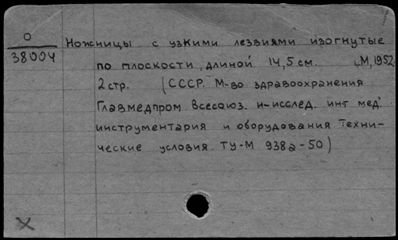 О
38004
Ножницы с узкими лезвиями изогнутые
по плоскости, длиной 14,5 см. М, 1952
2 стр. (СССР. М-во здравоохранения
Главмедпром. Всесоюз. н-исслед. инт мед.
инструментария и оборудования. Техни-
ческие условия. ТУ-М 938а-50)